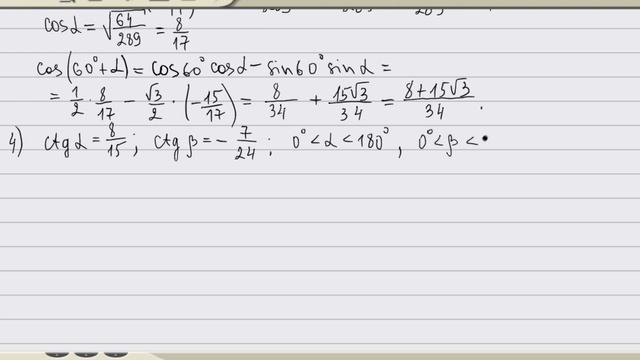 cos α = √64/289 = 8/17
289
cos(60° + α) = cos 60° cos α − sin 60° sin α =
= 1/2 · 8/17 − √3/2 · (−15/17) = 8/34 + 15√3/34 = 8+15√3/34 .
4) ctg α = 8/15 ; ctg β = − 7/24 ; 0° < α < 180° , 0° < β <